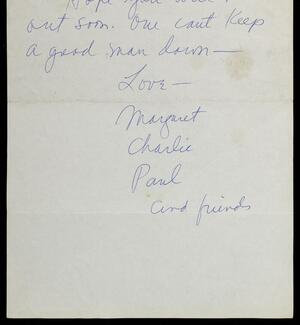 Hope you will
out soon. One can't keep
a good man down—
Love—
Margaret
Charlie
Paul
and friends